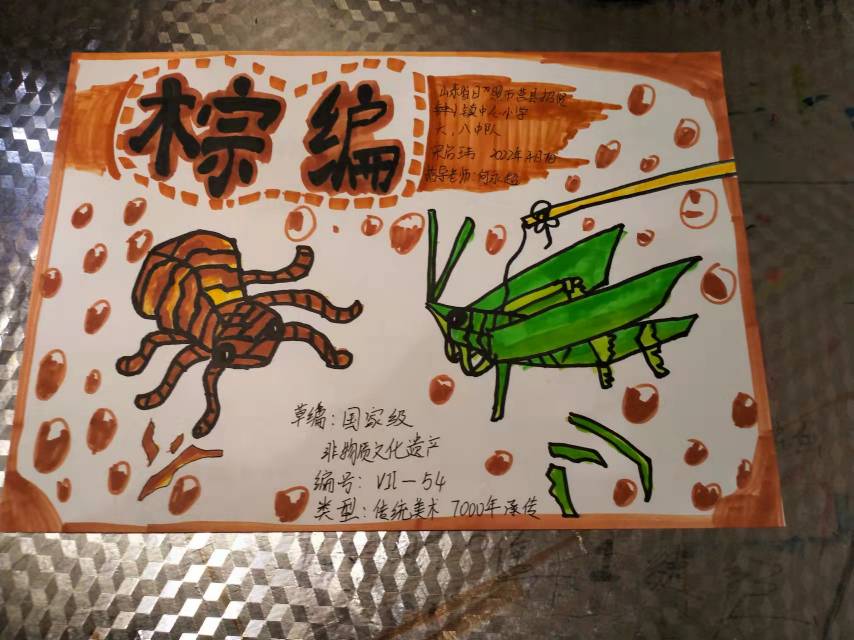 棕编
山东省日照市莒县招贤
镇中心小学
六.八中队
2022年4月
指导老师:何
草编:国家级
非物质文化遗产
编号:VII-54
类型:传统美术 7000年承传